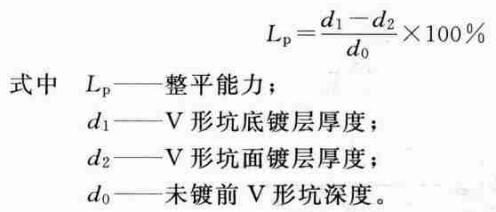 Lp = (d1 − d2) / d0 × 100%
式中 Lp——整平能力；
d1——V 形坑底镀层厚度；
d2——V 形坑面镀层厚度；
d0——未镀前 V 形坑深度。